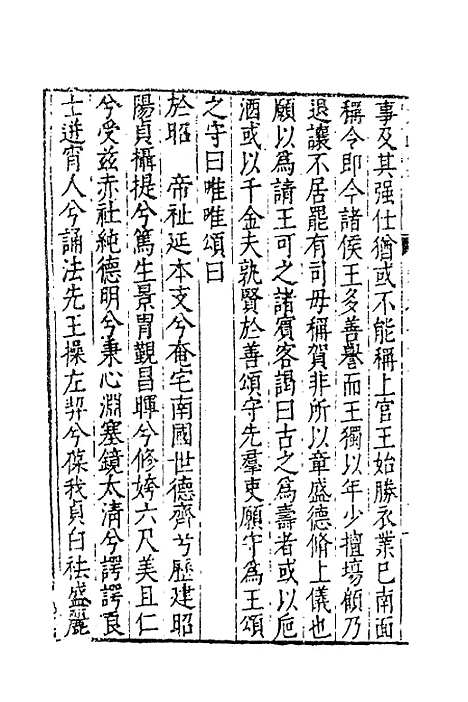 事及其强仕猶或不能稱上官王始勝衣業已南面
稱令即今諸侯王多善譽而王獨以年少擅塲顧乃
退讓不居罷有司毋稱賀非所以章盛德脩上儀也
願以為請王可之諸賓客謁曰古之為壽者或以巵
酒或以千金夫孰賢於善頌守先羣吏願守為王頌
之守曰唯唯頌曰
於昭　帝祉延本支兮奄宅南國世德齊兮歷建昭
陽貞攝提兮篤生景胄覲昌暉兮修姱六尺美且仁
兮受兹赤社純德明兮秉心淵塞鏡太清兮諤諤良
士迸宵人兮誦法先王操左契兮葆我貞白祛盛麗